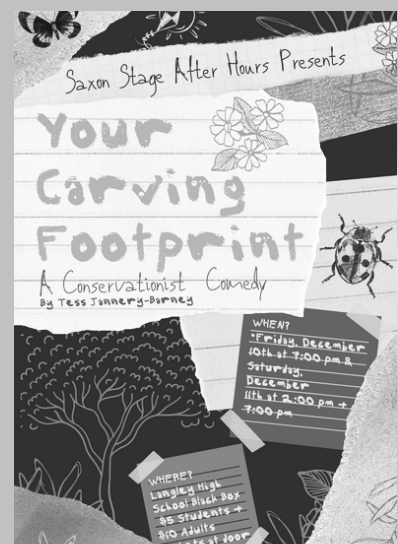 Saxon Stage After Hours Presents
Your
Carving
Footprint
A Conservationist Comedy
By Tess Jannery-Barney
WHEN?
*Friday, December
10th at 7:00 pm &
Saturday,
December
11th at 2:00 pm +
7:00 pm
WHERE?
Langley High
School Black Box
$5 Students +
$10 Adults
at door